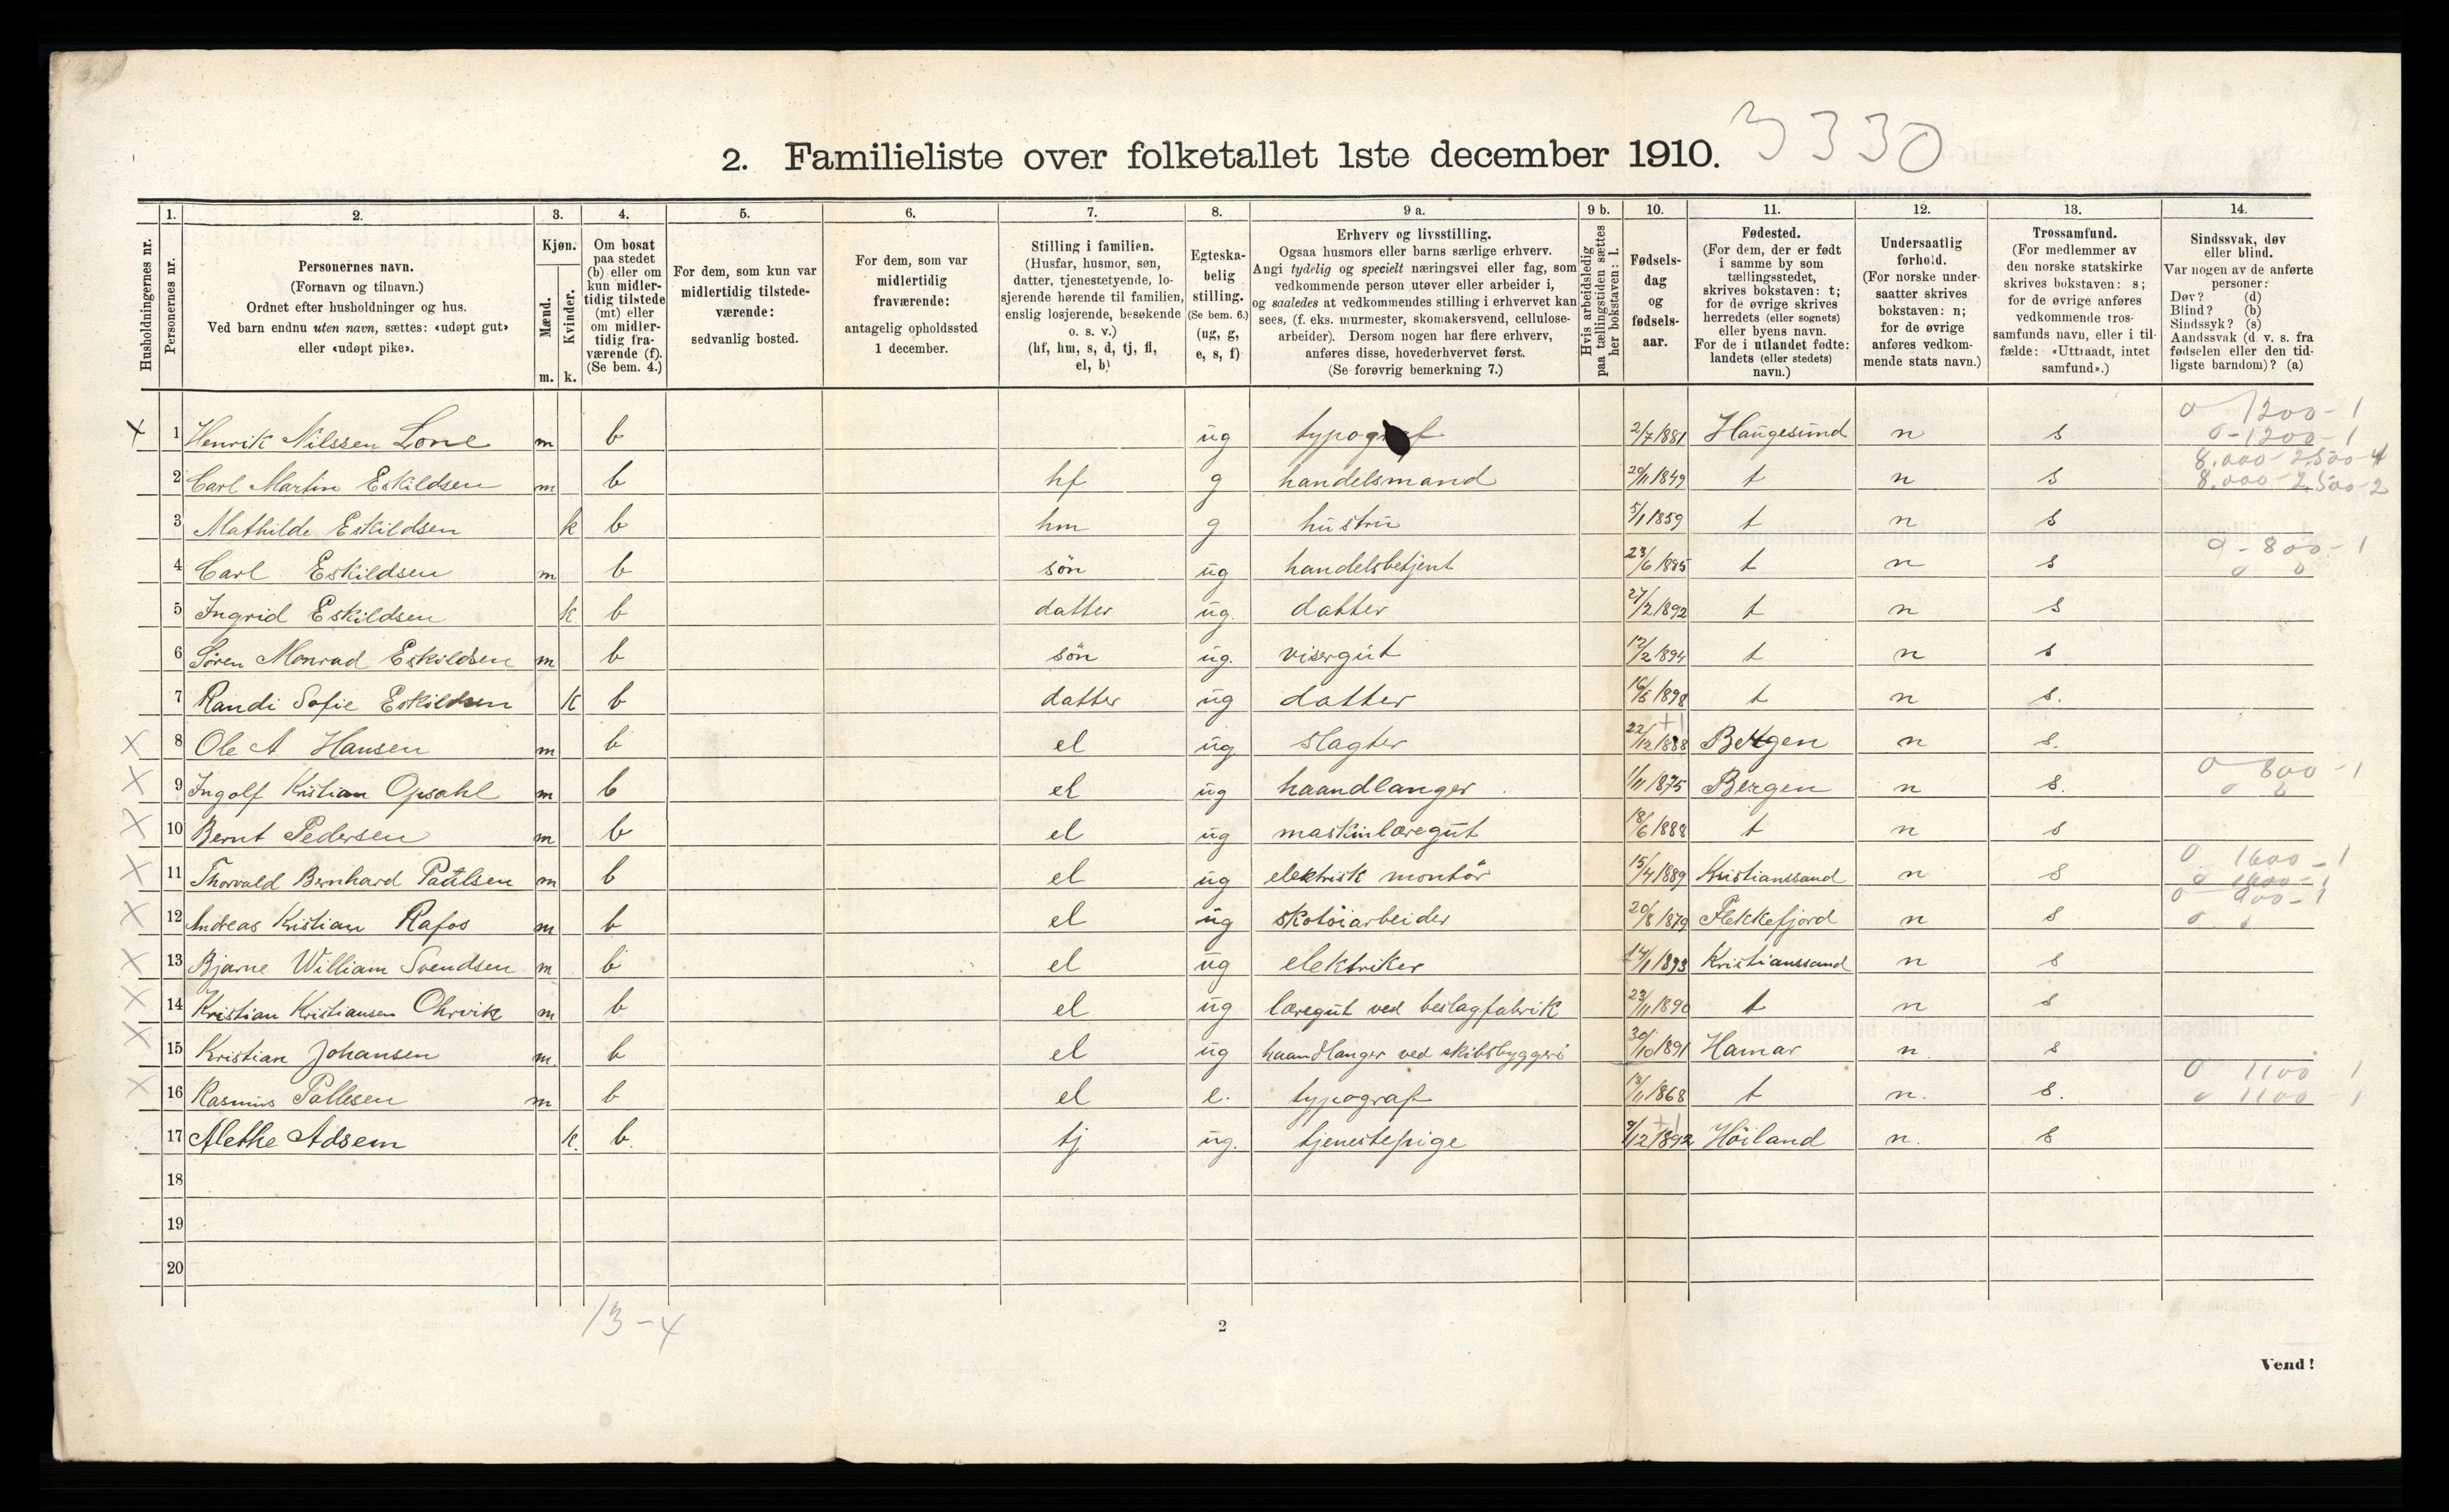 3330
2. Familieliste over folketallet 1ste december 1910.
1. 2. 3. 4. 5. 6. 7. 8. 9 a. 9 b. 10. 11. 12. 13. 14.
Husholdningernes nr.
Personernes nr.
Personernes navn.
(Fornavn og tilnavn.)
Ordnet efter husholdninger og hus.
Ved barn endnu uten navn, sættes: «udøpt gut»
eller «udøpt pike».
Kjøn.
Mænd.
Kvinder.
m. k.
Om bosat
paa stedet
(b) eller om
kun midler-
tidig tilstede
(mt) eller
om midler-
tidig fra-
værende (f).
(Se bem. 4.)
For dem, som kun var
midlertidig tilstede-
værende:
sedvanlig bosted.
For dem, som var
midlertidig
fraværende:
antagelig opholdssted
1 december.
Stilling i familien.
(Husfar, husmor, søn,
datter, tjenestetyende, lo-
sjerende hørende til familien,
enslig losjerende, besøkende
o. s. v.)
(hf, hm, s, d, tj, fl,
el, b)
Egteska-
belig
stilling.
(Se bem. 6.)
(ug, g,
e, s, f)
Erhverv og livsstilling.
Ogsaa husmors eller barns særlige erhverv.
Angi tydelig og specielt næringsvei eller fag, som
vedkommende person utøver eller arbeider i,
og saaledes at vedkommendes stilling i erhvervet kan
sees, (f. eks. murmester, skomakersvend, cellulose-
arbeider). Dersom nogen har flere erhverv,
anføres disse, hovederhvervet først.
(Se forøvrig bemerkning 7.)
Hvis arbeidsledig
paa tællingstiden sættes
her bokstaven: l.
Fødsels-
dag
og
fødsels-
aar.
Fødested.
(For dem, der er født
i samme by som
tællingsstedet,
skrives bokstaven: t;
for de øvrige skrives
herredets (eller sognets)
eller byens navn.
For de i utlandet fødte:
landets (eller stedets)
navn.)
Undersaatlig
forhold.
(For norske under-
saatter skrives
bokstaven: n;
for de øvrige
anføres vedkom-
mende stats navn.)
Trossamfund.
(For medlemmer av
den norske statskirke
skrives bokstaven: s;
for de øvrige anføres
vedkommende tros-
samfunds navn, eller i til-
fælde: «Uttraadt, intet
samfund».)
Sindssvak, døv
eller blind.
Var nogen av de anførte
personer:
Døv? (d)
Blind? (b)
Sindssyk? (s)
Aandssvak (d. v. s. fra
fødselen eller den tid-
ligste barndom)? (a)
x 1 Henrik Nilssen Lone m b ug typograf 2/7 1881 Haugesund n s 0 1200-1
0-1200-1
2 Carl Martin Eskildsen m b hf g handelsmand 20/11 1849 t n s 8.000-2.500-4
8.000-2.500-2
3 Mathilde Eskildsen k b hm g hustru 5/1 1859 t n s
4 Carl Eskildsen m b søn ug handelsbetjent 23/6 1885 t n s 0-800-1
0 0
5 Ingrid Eskildsen k b datter ug. datter 27/2 1892 t n s
6 Søren Monrad Eskildsen m b søn ug. visergut 12/2 1894 t n s
7 Randi Sofie Eskildsen k b datter ug datter 16/5 1898 t n s.
x 8 Ole A Hansen m b el ug slagter 22/12 1888 +1 Bergen n s.
x 9 Ingolf Kristian Opsahl m b el ug haandlanger 1/11 1875 Bergen n s. 0 800-1
0 0
x 10 Bernt Pedersen m b el ug maskinlæregut 18/6 1888 t n s
x 11 Thorvald Bernhard Paulsen m b el ug elektrisk montør 15/4 1889 Kristianssand n s 0 1600-1
0 1600-1
x 12 Andreas Kristian Rafos m b el ug skotøiarbeider 20/8 1879 Flekkefjord n s 0 900-1
0 0
x 13 Bjarne William Svendsen m b el ug elektriker 14/1 1893 Kristianssand n s
x 14 Kristian Kristiansen Ohrvik m b el ug læregut ved beslagfabrik 23/11 1890 t n s
x 15 Kristian Johansen m. b el ug haandlanger ved skibsbyggeri 30/10 1891 Hamar n. s
x 16 Rasmus Pallesen m b el e. typograf 18/11 1868 t n. s. 0 1100 1
0 1100 1
17 Alethe Adsem k. b. tj ug. tjenestepige 9/12 1892 +1 Höiland n. s
18
19
20
13-4
2
Vend!